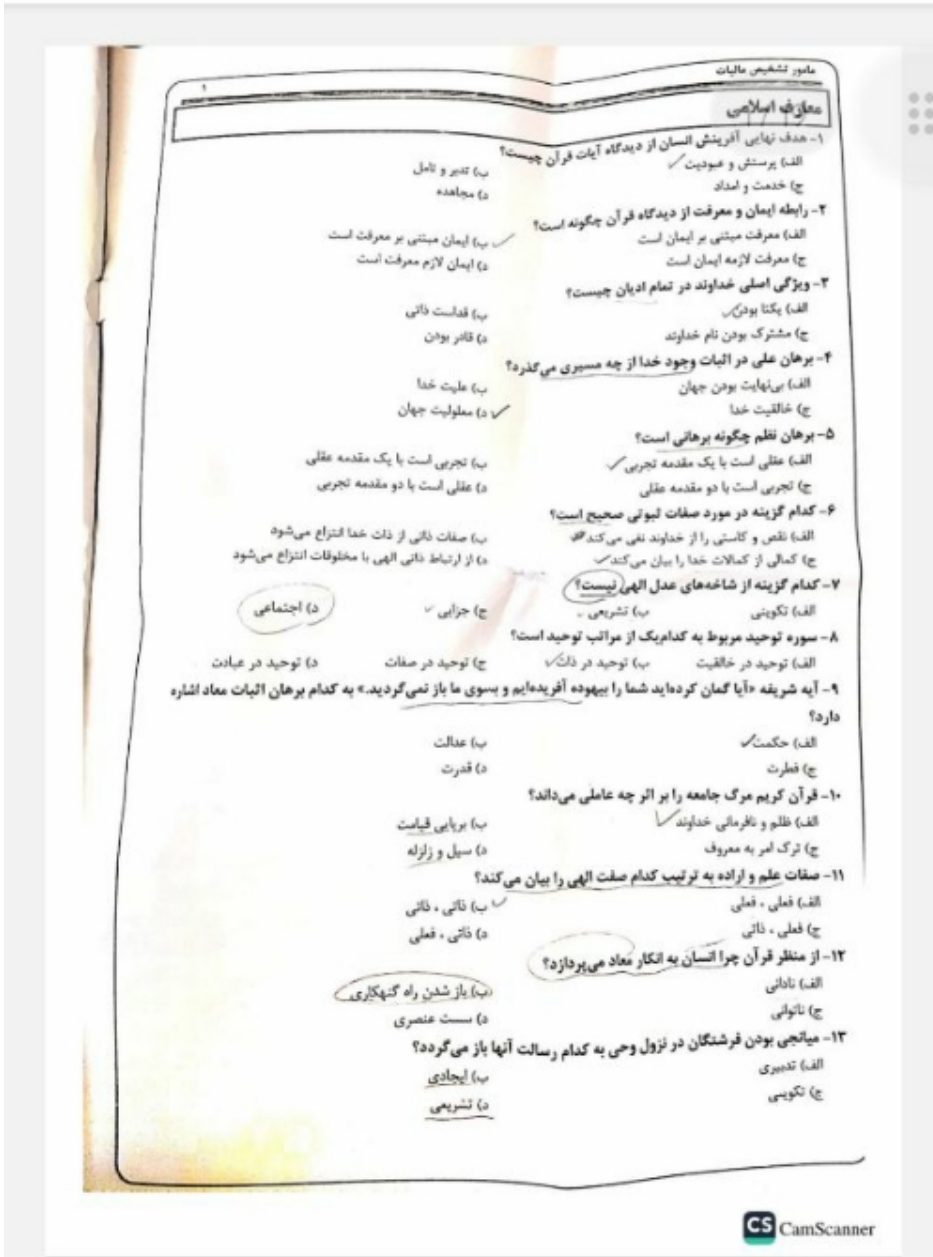 مامور تشخیص مالیات
۱
معارف اسلامی
۱- هدف نهایی آفرینش انسان از دیدگاه آیات قرآن چیست؟
الف) پرستش و عبودیت ب) تدبر و تامل
ج) خدمت و امداد د) مجاهده
۲- رابطه ایمان و معرفت از دیدگاه قرآن چگونه است؟
الف) معرفت مبتنی بر ایمان است ب) ایمان مبتنی بر معرفت است
ج) معرفت لازمه ایمان است د) ایمان لازم معرفت است
۳- ویژگی اصلی خداوند در تمام ادیان چیست؟
الف) یکتا بودن ب) قداست ذاتی
ج) مشترک بودن نام خداوند د) قادر بودن
۴- برهان علی در اثبات وجود خدا از چه مسیری می‌گذرد؟
الف) بی‌نهایت بودن جهان ب) علیت خدا
ج) خالقیت خدا د) معلولیت جهان
۵- برهان نظم چگونه برهانی است؟
الف) عقلی است با یک مقدمه تجربی ب) تجربی است با یک مقدمه عقلی
ج) تجربی است با دو مقدمه عقلی د) عقلی است با دو مقدمه تجربی
۶- کدام گزینه در مورد صفات ثبوتی صحیح است؟
الف) نقص و کاستی را از خداوند نفی می‌کند ب) صفات ذاتی از ذات خدا انتزاع می‌شود
ج) کمالی از کمالات خدا را بیان می‌کند د) از ارتباط ذاتی الهی با مخلوقات انتزاع می‌شود
۷- کدام گزینه از شاخه‌های عدل الهی نیست؟
الف) تکوینی ب) تشریعی ج) جزایی د) اجتماعی
۸- سوره توحید مربوط به کدام‌یک از مراتب توحید است؟
الف) توحید در خالقیت ب) توحید در ذات ج) توحید در صفات د) توحید در عبادت
۹- آیه شریفه «آیا گمان کرده‌اید شما را بیهوده آفریده‌ایم و بسوی ما باز نمی‌گردید.» به کدام برهان اثبات معاد اشاره
دارد؟
الف) حکمت ب) عدالت
ج) فطرت د) قدرت
۱۰- قرآن کریم مرگ جامعه را بر اثر چه عاملی می‌داند؟
الف) ظلم و نافرمانی خداوند ب) برپایی قیامت
ج) ترک امر به معروف د) سیل و زلزله
۱۱- صفات علم و اراده به ترتیب کدام صفت الهی را بیان می‌کند؟
الف) فعلی ، فعلی ب) ذاتی ، ذاتی
ج) فعلی ، ذاتی د) ذاتی ، فعلی
۱۲- از منظر قرآن چرا انسان به انکار معاد می‌پردازد؟
الف) نادانی ب) باز شدن راه گنهکاری
ج) ناتوانی د) سست عنصری
۱۳- میانجی بودن فرشتگان در نزول وحی به کدام رسالت آنها باز می‌گردد؟
الف) تدبیری ب) ایجادی
ج) تکوینی د) تشریعی
CS CamScanner